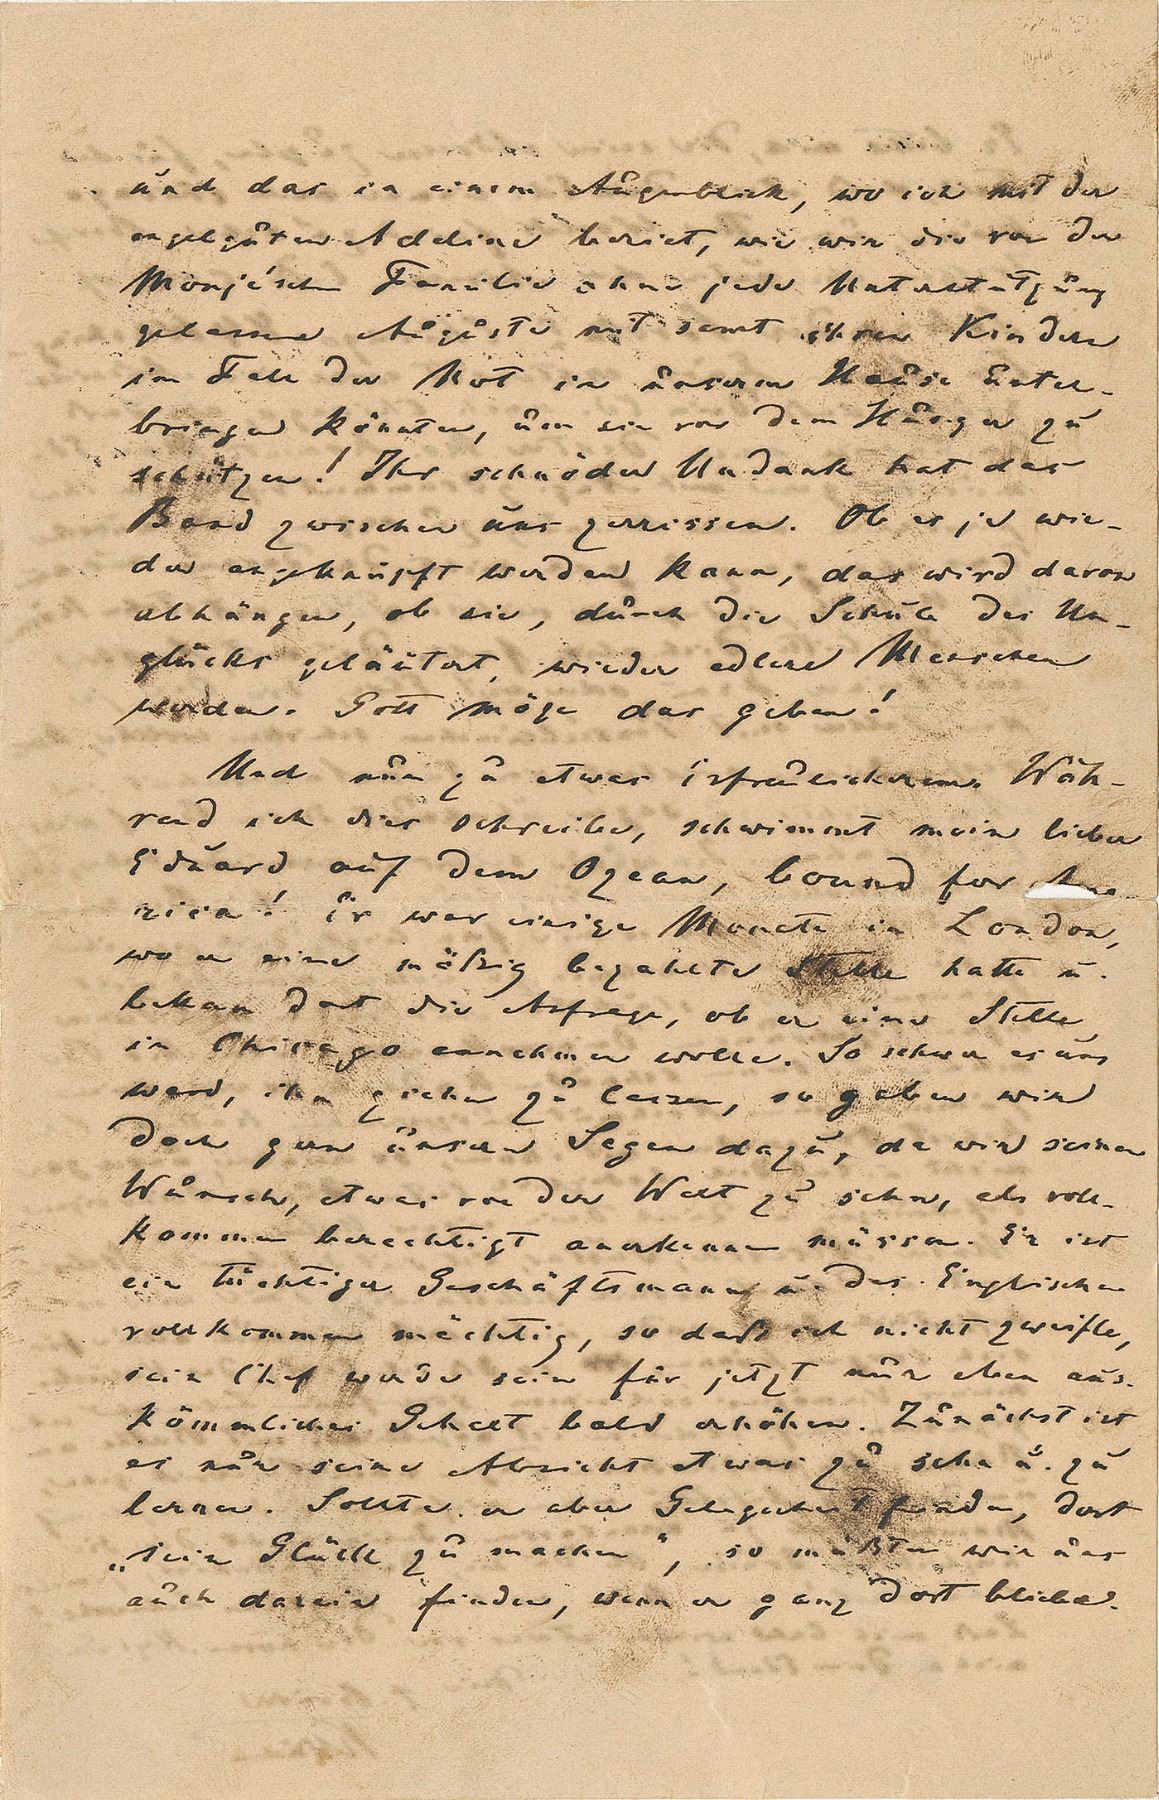 und das in einem Augenblick, wo ich mit der
engelguten Adeline beriet, wie wir die von der
Monjé'schen Familie ohne jede Unterstützung
gelassene Auguste mit samt ihren Kindern
im Fall der Not in unserem Hause unter-
bringen könnten, um sie vor dem Hunger zu
schützen! Ihr schnöder Undank hat das
Band zwischen uns zerrissen. Ob es je wie-
der angeknüpft werden kann, das wird davon
abhängen, ob sie, durch die Schule des Un-
glücks geläutert, wieder edlere Menschen
werden. Gott möge das geben!
Und nun zu etwas Erfreulicherem. Wäh-
rend ich dies schreibe, schwimmt mein lieber
Eduard auf dem Ozean, bound for Ame-
rica! Er war einige Monate in London,
wo er eine mäßig bezahlte Stelle hatte u.
bekam dort die Anfrage, ob er eine Stelle
in Chicago annehmen wolle. So schwer es uns
ward, ihn ziehen zu lassen, so geben wir
doch gern unsern Segen dazu, da wir seinen
Wunsch, etwas von der Welt zu sehn, als voll-
kommen berechtigt anerkennen müssen. Er ist
ein tüchtiger Geschäftsmann u. des Englischen
vollkommen mächtig, so daß ich nicht zweifle,
sein Chef werde sein für jetzt nur eben aus-
kömmliches Gehalt bald erhöhen. Zunächst ist
es nur seine Absicht etwas zu sehn u. zu
lernen. Sollte er aber Gelegenheit finden, dort
„sein Glück zu machen“, so müßten wir uns
auch darein finden, wenn er ganz dort bliebe.